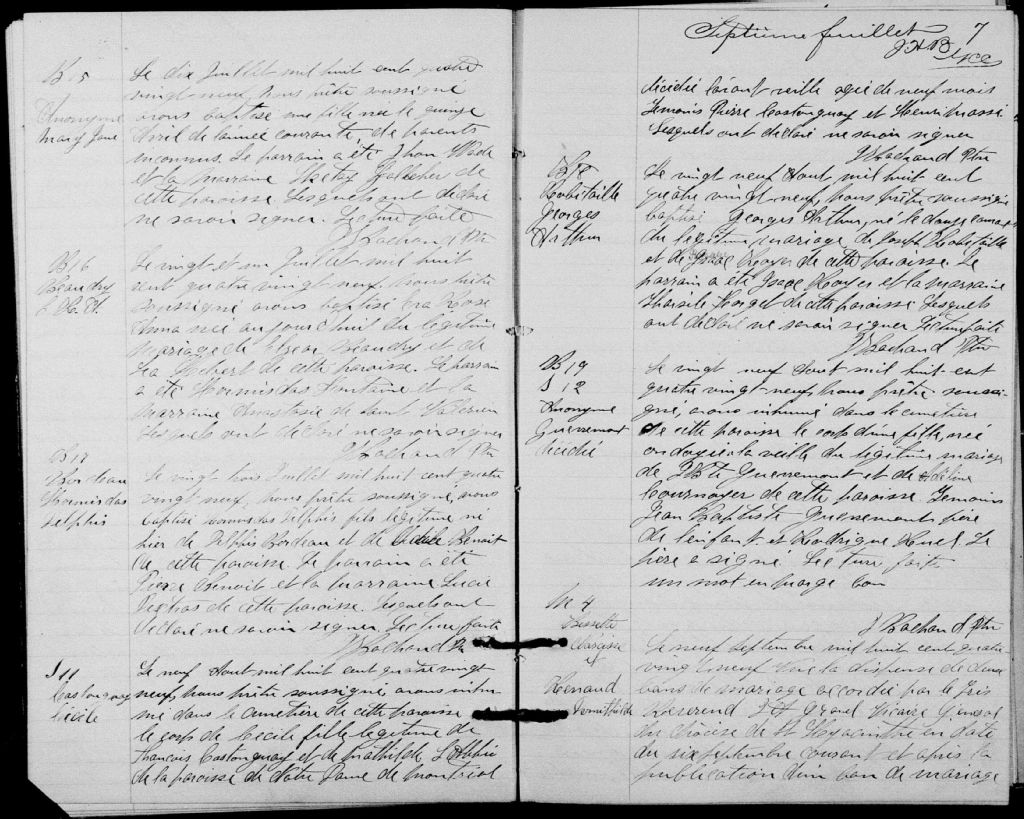 B 15
Anonyme
Mary Jane
Le dix Juillet mil huit cent quatre
vingt neuf, nous prêtre soussigné
avons baptisé une fille née le quinze
Avril de l'année courante de parents
inconnus. Le parrain a été Jhon Wade
et la marraine de
cette paroisse. Lesquels ont déclaré
ne savoir signer. Lecture faite
J Bachand Ptr
B 16
Beaudry
Le vingt et un Juillet mil huit
cent quatre vingt neuf, nous prêtre
soussigné avons baptisé Rose
Anna née aujourd'hui du légitime
mariage de Beaudry et de
Hébert de cette paroisse. Le parrain
a été Hormisdas Fontaine et la
marraine Anastasie de Saint Valérien
lesquels ont déclaré ne savoir signer
J Bachand Ptr
B 17
Bordeau
Hormisdas
Delphis
Le vingt trois Juillet mil huit cent quatre
vingt neuf, nous prêtre soussigné avons
baptisé Hormisdas Delphis fils légitime né
hier de Delphis Bordeau et de Benoit
de cette paroisse. Le parrain a été
Pierre Benoit et la marraine Lucie
de cette paroisse. Lesquels ont
déclaré ne savoir signer. Lecture faite
J Bachand Ptr
S 11
Castonguay
Cécile
Le neuf Août mil huit cent quatre vingt
neuf, nous prêtre soussigné avons inhu-
mé dans le cimetière de cette paroisse
le corps de Cécile fille légitime de
François Castonguay et de Mathilde
de la paroisse de Notre Dame de Montréal
Septième feuillet 7
J H B
décédée l'avant veille agée de neuf mois
Témoins Pierre Castonguay et Henri Massé
Lesquels ont déclaré ne savoir signer
J Bachand Ptr
B 18
Robitaille
Georges
Arthur
Le vingt neuf Août mil huit cent
quatre vingt neuf, nous prêtre soussigné
baptisé Georges Arthur, né le douze courant
du légitime mariage de Joseph Robitaille
et de Royer de cette paroisse. Le
parrain a été Isaac Royer et la marraine
Tharsile Forget de cette paroisse Lesquels
ont déclaré ne savoir signer Lecture faite
J Bachand Ptr
B 19
S 12
Anonyme
Guevremont
décédée
Le vingt neuf Août mil huit cent
quatre vingt neuf, nous prêtre soussi-
gné, avons inhumé dans le cimetière
de cette paroisse le corps d'une fille, née
ondoyée la veille du légitime mariage
de J Bte Guevremont et de Adéline
Cournoyer de cette paroisse Témoins
Jean Baptiste Guevremont père
de l'enfant et Rodrigue Le
père a signé. Lecture faite
un mot en marge bon
J Bachand Ptr
M 4
Bessette
Narcisse
&
Renaud
Domithilde
Le neuf Septembre mil huit cent quatre
vingt neuf Vu la dispense de deux
bans de mariage accordée par le Très
Révérend Gravel Vicaire Général
du diocèse de St Hyacinthe en date
du six septembre courant et après la
publication d'un ban de mariage